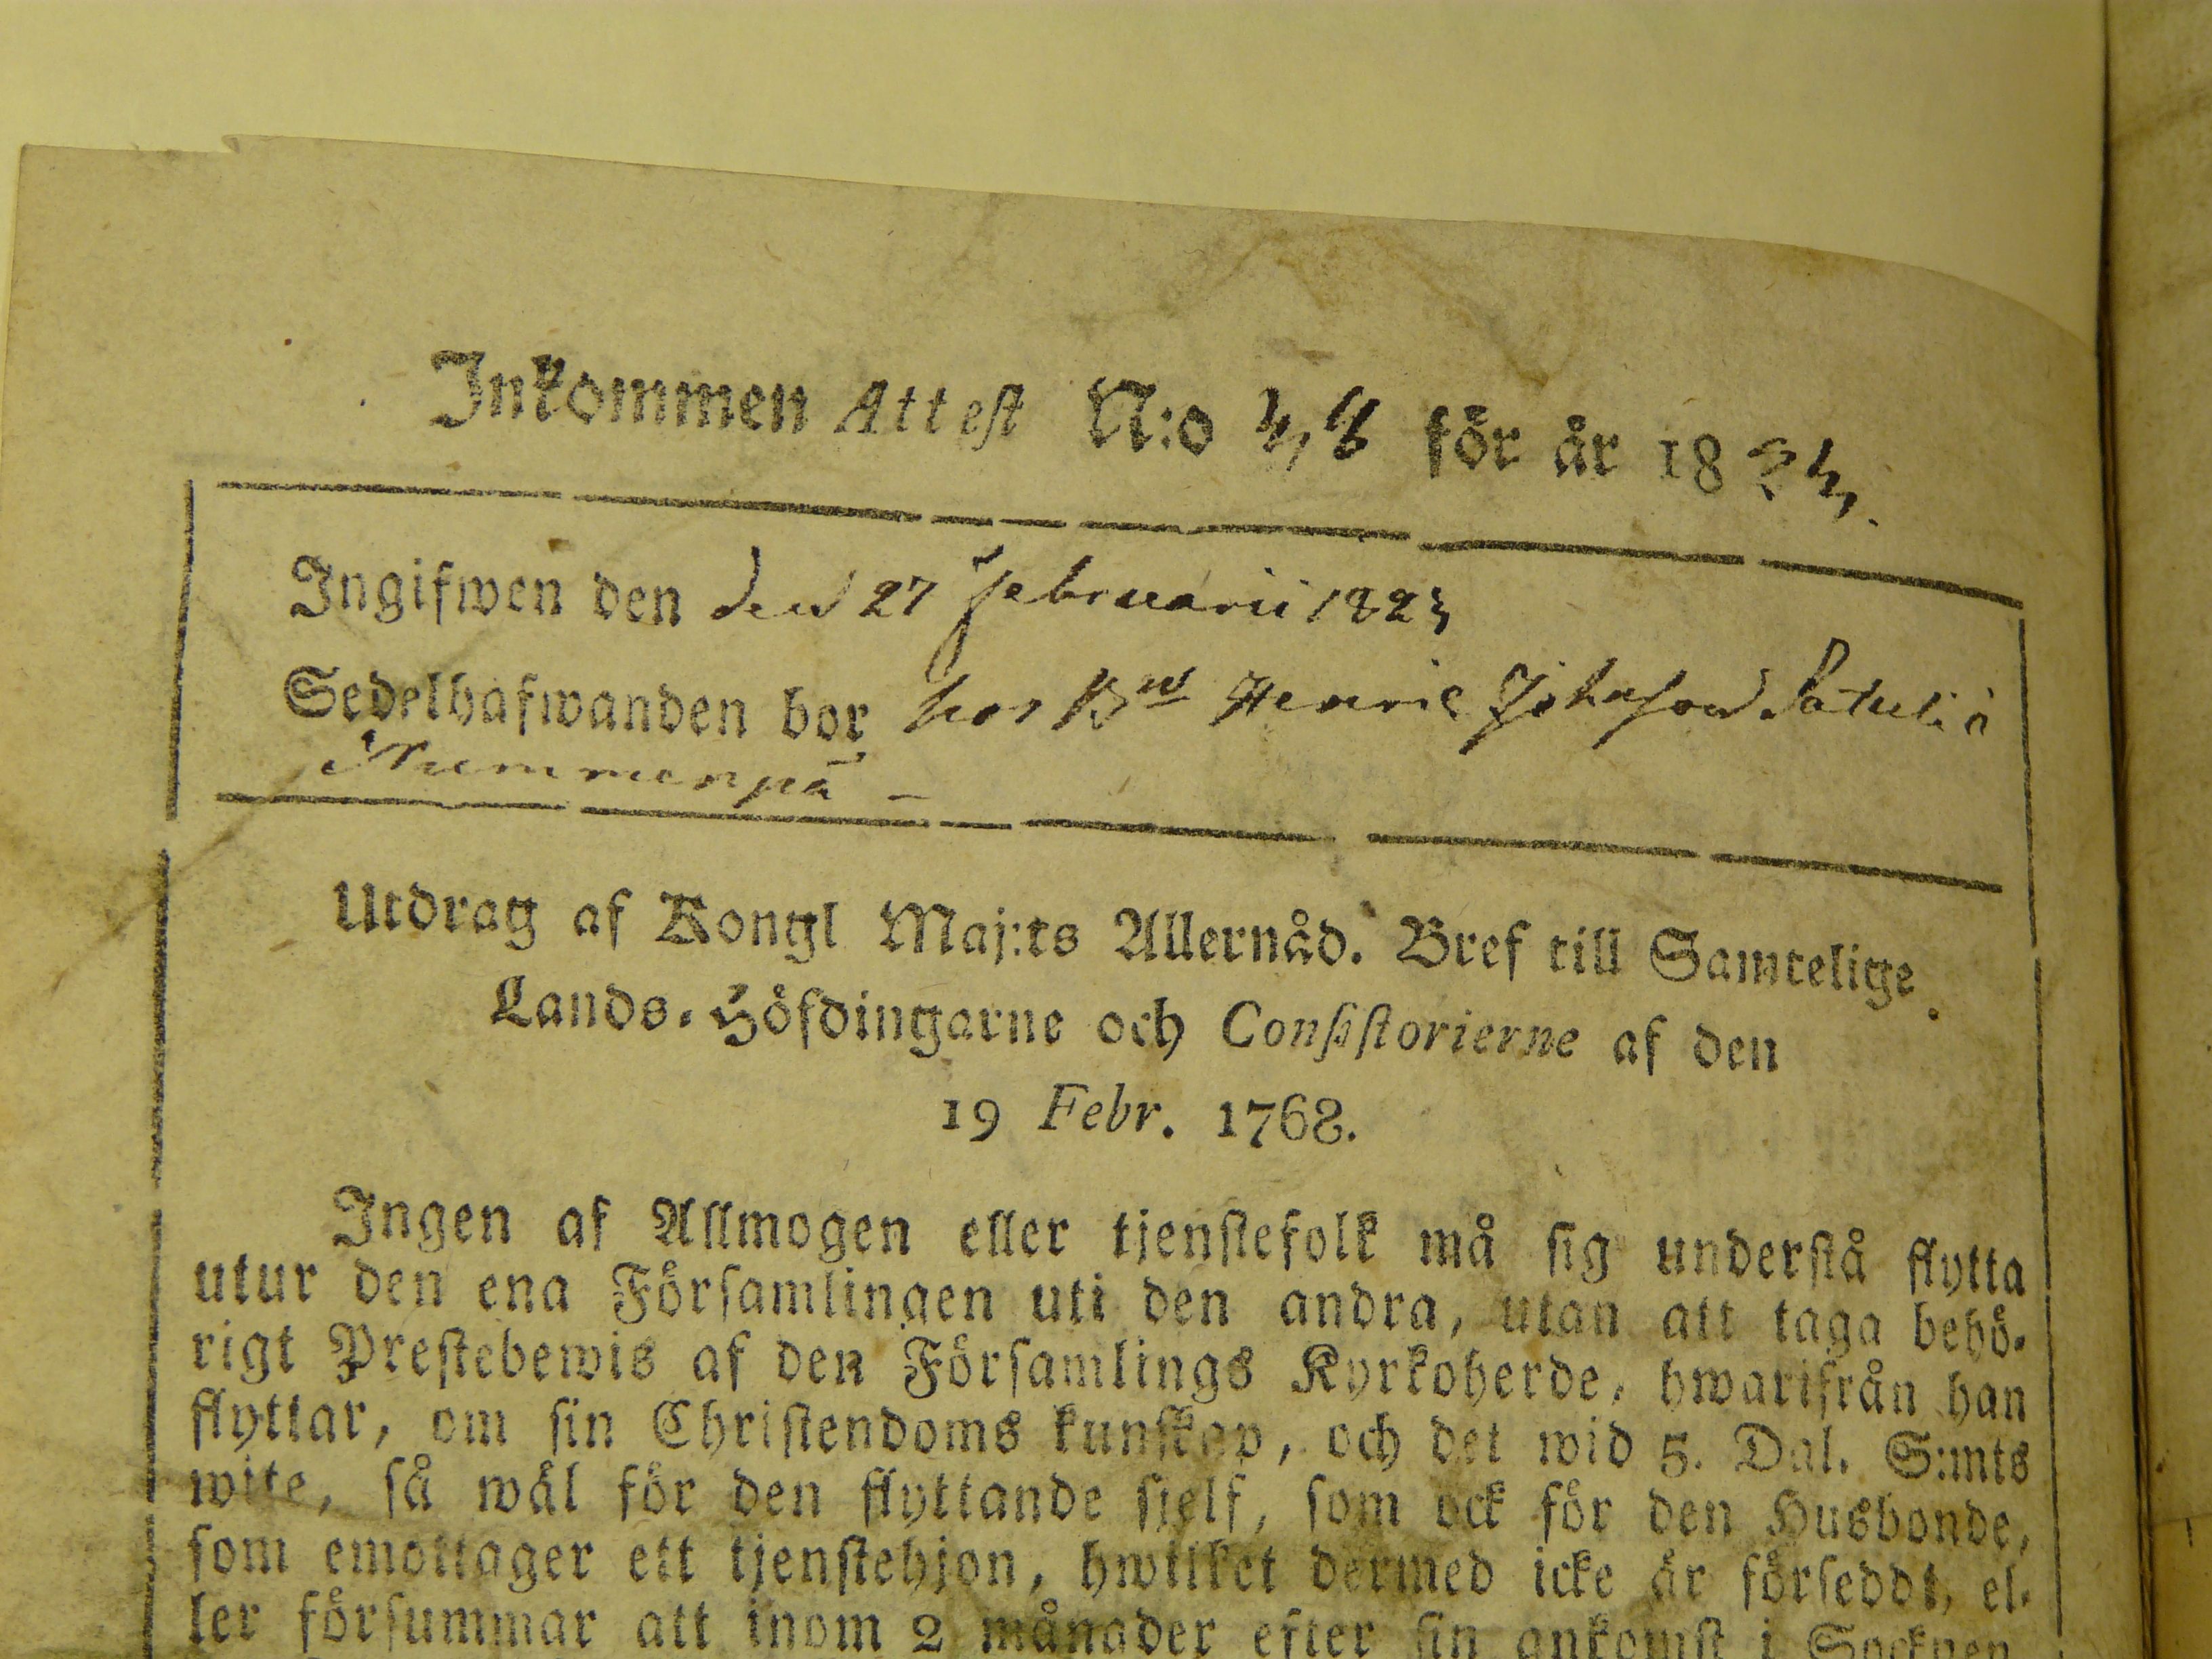 Inkommen Attest N:o 48 för år 1824.
Ingifwen den den 27 Februarii 1824
Sedelhafwanden bor hos Bn Henric Johansson i
Nummenpä –
Utdrag af Kongl Maj:ts Allernåd. Bref till Samtelige
Lands-Höfdingarne och Consistorierne af den
19 Febr. 1768.
Ingen af Allmogen eller tjenstefolk må sig understå flytta
utur den ena Församlingen uti den andra, utan att taga behö-
rigt Prestebewis af den Församlings Kyrkoherde, hwarifrån han
flyttar, om sin Christendoms kunskap, och det wid 5. Dal. S:mts
wite, så wäl för den flyttande sjelf, som ock för den Husbonde,
som emottager ett tjenstehjon, hwilket dermed icke är förseddt, el-
ler försummar att inom 2 månader efter sin ankomst i Socknen